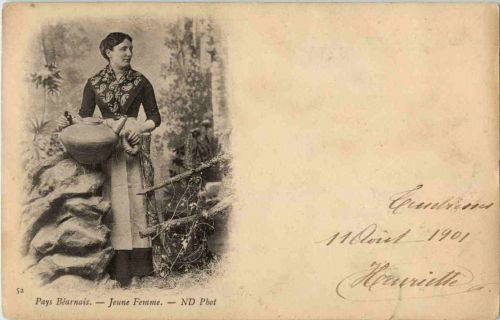 52
Pays Béarnais. — Jeune Femme. — ND Phot
11 Août 1901
Henriette